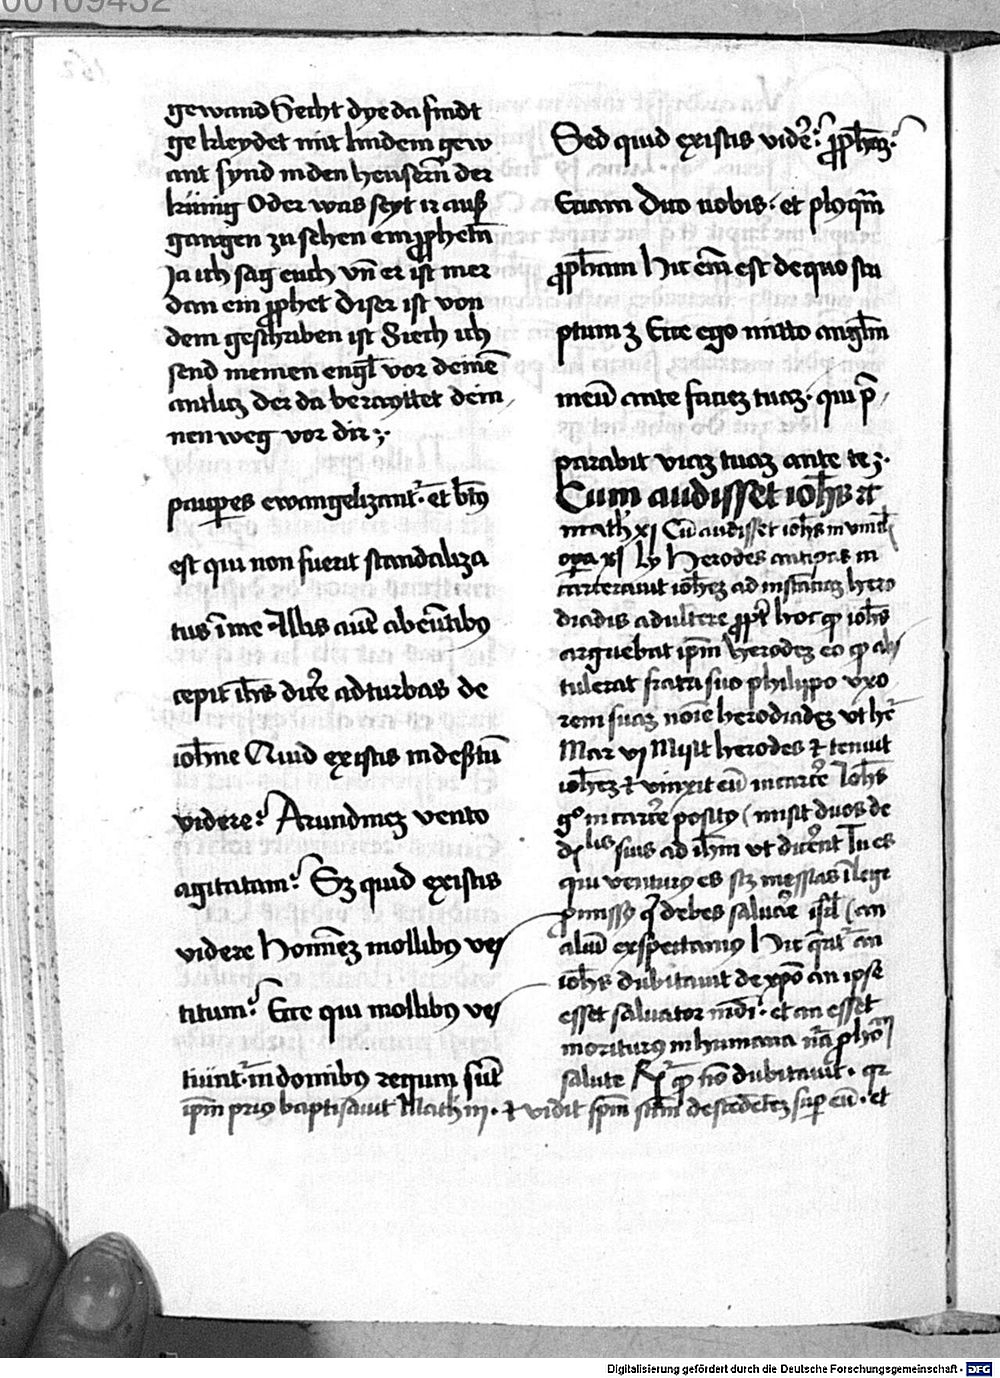 00109432
gewand Secht dye da sindt
ge kleydet mit lindem gew
ant synd in den heusern̄ der
künig Oder was seyt ir auß
gangen zu sehen ein ꝓphetn̄
Ja ich sag euch vn̄ er ist mer
dan ein ꝓphet diser ist von
dem geschriben ist Siech ich
send meinen engl vor deinē
antlicz der da berayttet dein
nen weg vor dir
pauꝑes ewangelizant᷑· et bt̄ꝰ
est qui non fuerit scandaliza
tus ī me Illis aūt abeūtibꝰ
cepit ih̄s dicē ad turbas de
ioh̄ne Quid existis in deẜtū
videre? Arundineꝫ vento
agitatam? Sꝫ quid existis
videre homīeꝫ mollibꝰ ves
titum? Ecce qui mollibꝰ ves
tiūnt᷑ in domibꝰ regum sūt
Sed quid existis videē? ꝓph̄aꝫ?
Etiam dico vobis· et plꝰqm̄
ꝓph̄am Hic em̄ est de quo scri
ptum ꝫ Ecce ego mitto angl̄m
meū ante facieꝫ tuaꝫ· qui p̄
parabit viaꝫ tuaꝫ ante te
Cum audisset ioh̄es ⁊c̄
math̄ xi Cū audisset ioh̄s in vincl̄
opa xi Ly Herodes antipas in
carceravit ioh̄eꝫ ad instanciaꝫ hero
diadis adultere ꝓpt̄ hoc ꝙ ioh̄s
arguebat ipm̄ herodeꝫ eo ꝙ abs
tulerat fratri suo philippo vxo
rem suaꝫ noīe herodiadeꝫ vt hr̄
Mar vi Misit herodes ⁊ tenuit
ioh̄eꝫ ⁊ vinxit eū in carcē Ioh̄s
gº in carcē positꝰ (misit duos de
disˡⁱˢ suis ad ih̄m vt dicēnt Tu es
qui venturꝰ es scꝫ messias ī lege
ꝓmissꝰ q̄ debes saluāe isrl̄ (an
aliū expectamꝰ Hic q̄rit᷑ an
ioh̄s dubitauit de xp̄o an ipse
esset saluator mdī· et an esset
moriturꝰ in humana nā ꝓ hoīm
salute R̄ ꝙ nō dubitauit· qr
ipm̄ priꝰ baptisauit Math̄ iij· ⁊ vidit spm̄ scm̄ descēdētē suꝑ eū· et
Digitalisierung gefördert durch die Deutsche Forschungsgemeinschaft - DFG